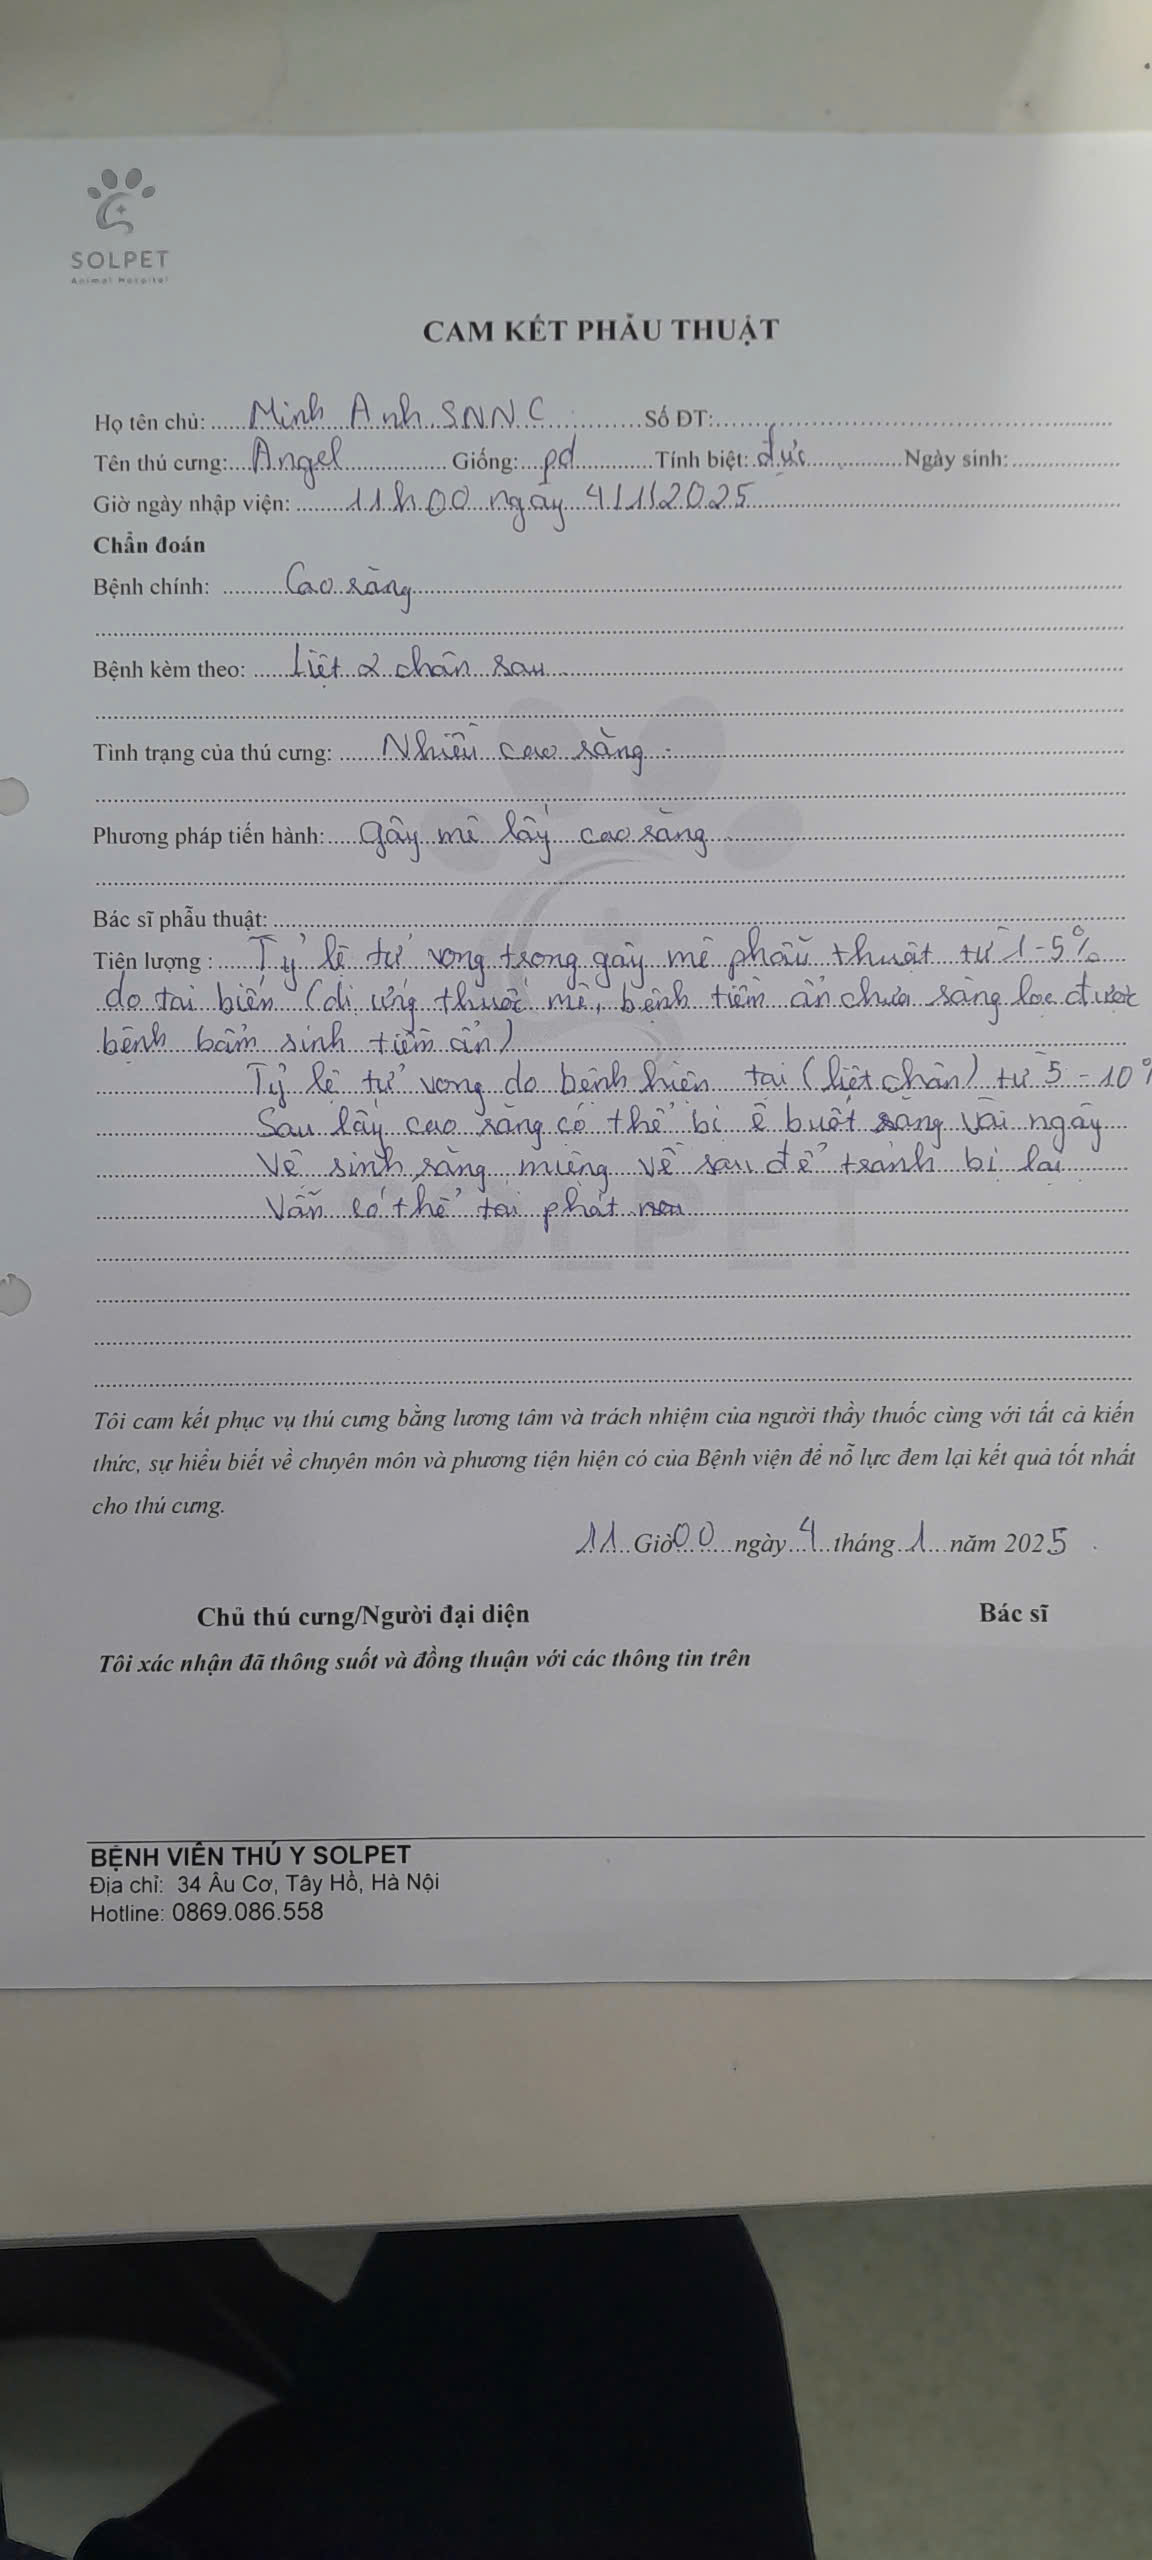 SOLPET
Animal Hospital
CAM KẾT PHẪU THUẬT
Họ tên chủ: Minh Anh SNNC Số ĐT:
Tên thú cưng: Angel Giống: pd Tính biệt: đực Ngày sinh:
Giờ ngày nhập viện: 11h00 ngày 4/1/2025
Chẩn đoán
Bệnh chính: Cao răng
Bệnh kèm theo: Liệt 2 chân sau
Tình trạng của thú cưng: Nhiều cao răng
Phương pháp tiến hành: Gây mê lấy cao răng
Bác sĩ phẫu thuật:
Tiên lượng : Tỷ lệ tử vong trong gây mê phẫu thuật từ 1-5%
do tai biến (dị ứng thuốc mê, bệnh tiềm ẩn chưa sàng lọc được
bệnh bẩm sinh tiềm ẩn)
Tỷ lệ tử vong do bệnh hiện tại (liệt chân) từ 5-10%
Sau lấy cao răng có thể bị ê buốt răng vài ngày
Vệ sinh răng miệng về sau để tránh bị lại
Vẫn có thể tái phát
SOLPET
Tôi cam kết phục vụ thú cưng bằng lương tâm và trách nhiệm của người thầy thuốc cùng với tất cả kiến
thức, sự hiểu biết về chuyên môn và phương tiện hiện có của Bệnh viện để nỗ lực đem lại kết quả tốt nhất
cho thú cưng.
11 Giờ 00 ngày 4 tháng 1 năm 2025
Chủ thú cưng/Người đại diện Bác sĩ
Tôi xác nhận đã thông suốt và đồng thuận với các thông tin trên
BỆNH VIÊN THÚ Y SOLPET
Địa chỉ: 34 Âu Cơ, Tây Hồ, Hà Nội
Hotline: 0869.086.558